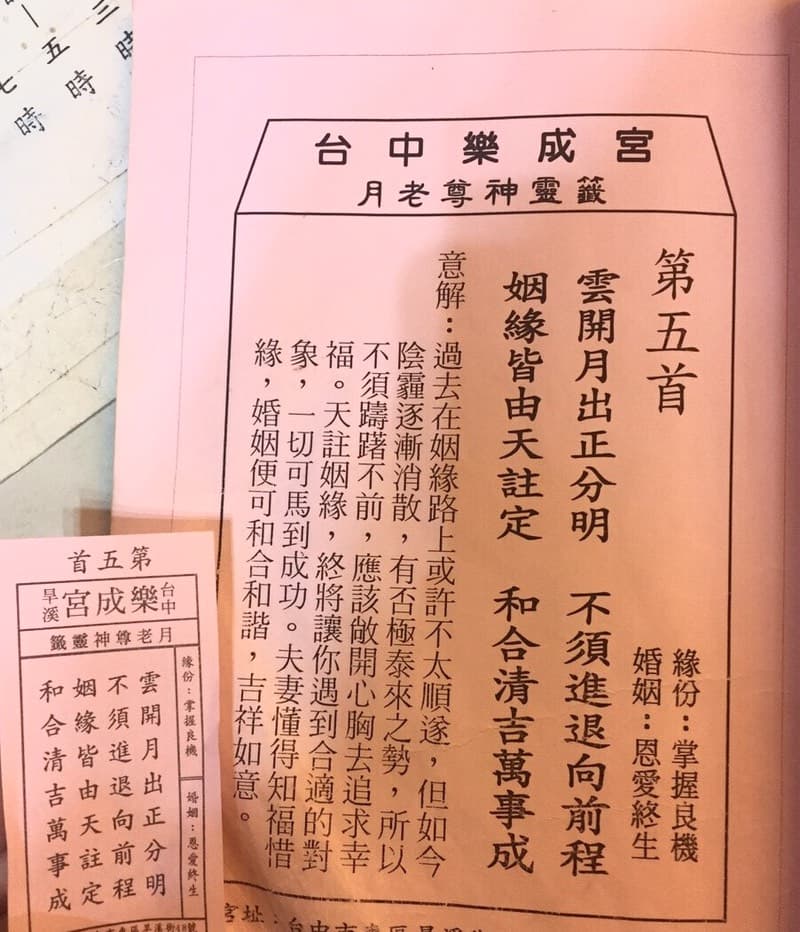 台中樂成宮
月老尊神靈籤
第五首
緣份：掌握良機
婚姻：恩愛終生
雲開月出正分明 不須進退向前程
姻緣皆由天註定 和合清吉萬事成
意解：過去在姻緣路上或許不太順遂，但如今
陰霾逐漸消散，有否極泰來之勢，所以
不須躊躇不前，應該敞開心胸去追求幸
福。天註姻緣，終將讓你遇到合適的對
象，一切可馬到成功。夫妻懂得知福惜
緣，婚姻便可和合和諧，吉祥如意。
宮址：台中市
第五首
台中樂成宮旱溪
月老尊神靈籤
緣份：掌握良機
婚姻：恩愛終生
雲開月出正分明
不須進退向前程
姻緣皆由天註定
和合清吉萬事成
三時
五時
七時